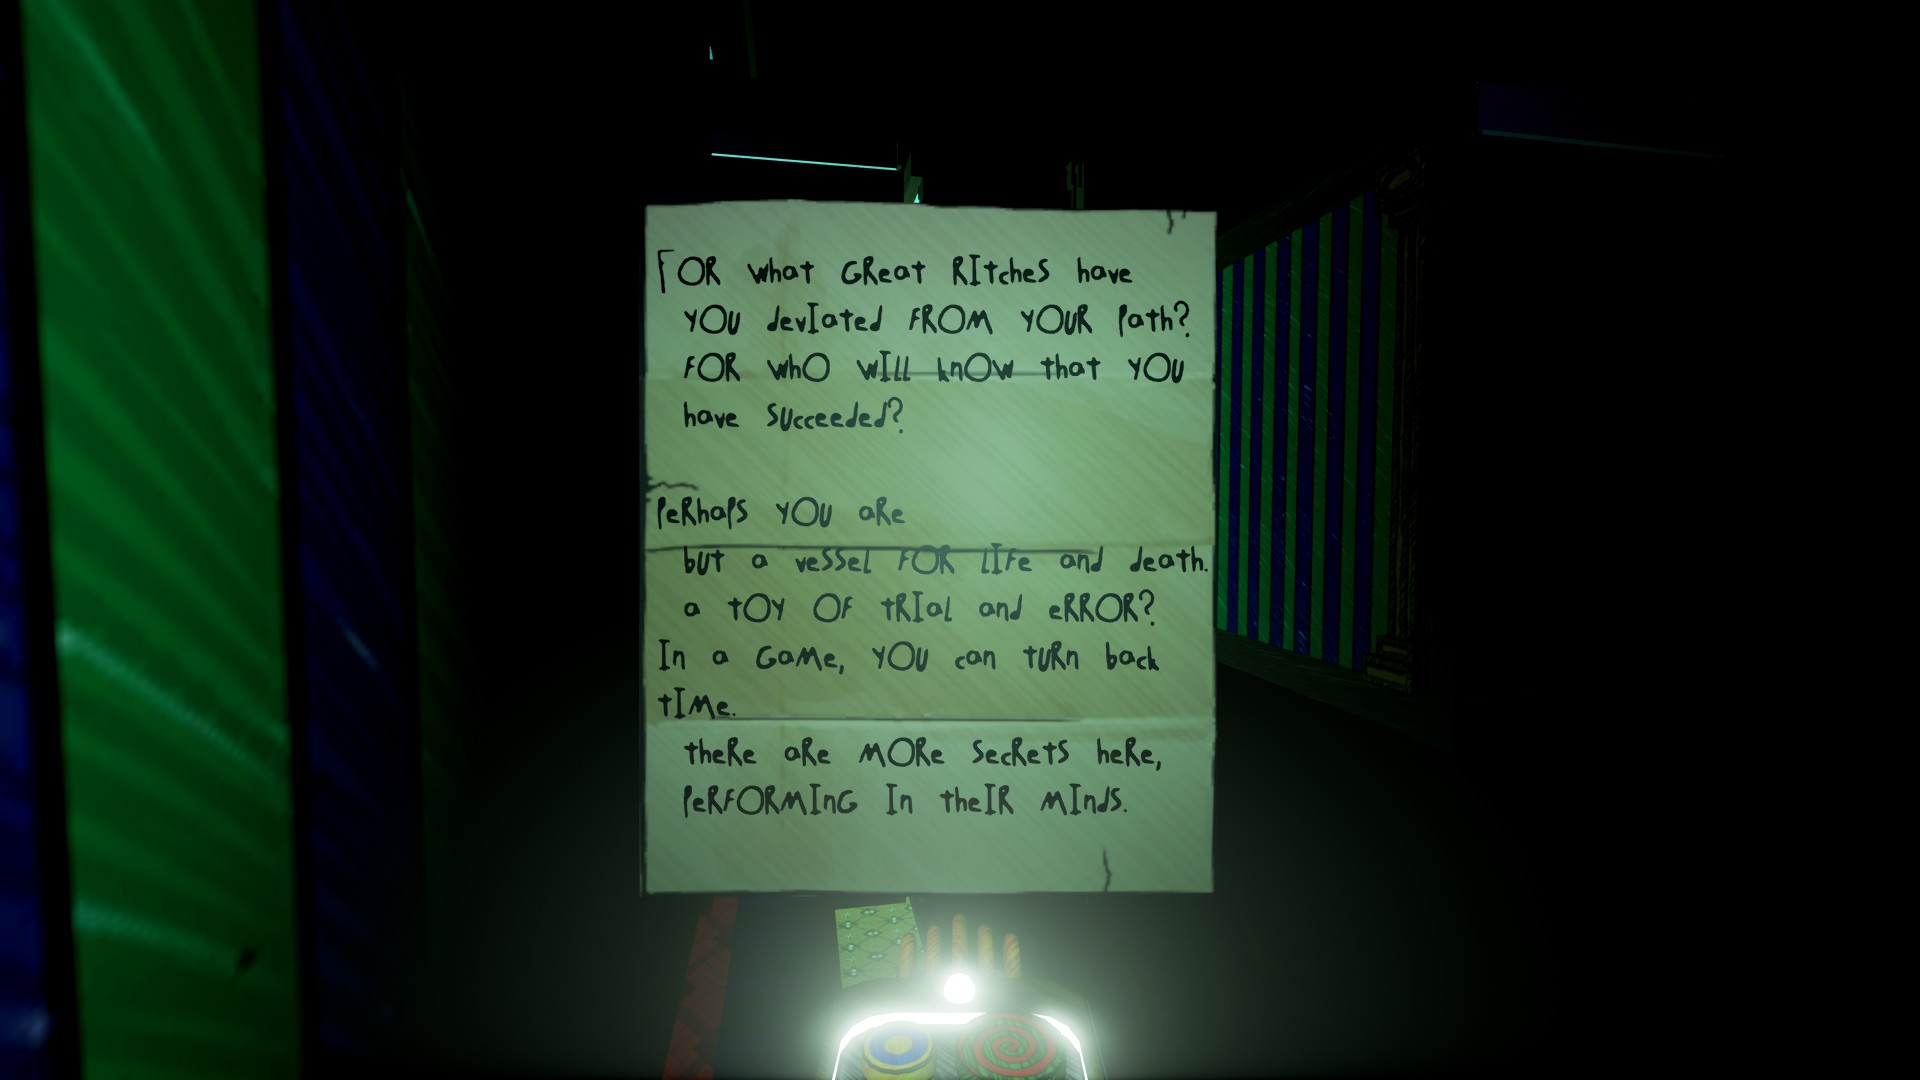 FOR what GReat RItcheS have
YOU devIated FROM YOUR Path?
FOR whO wIll knOw that YOU
have SUcceeded?
PeRhaPS YOU aRe
bUt a veSSel FOR lIFe and death.
a tOY OF tRIal and eRROR?
In a GaMe, YOU can tURn back
tIMe.
theRe aRe MORe SecRetS heRe,
PeRFORMInG In theIR MIndS.